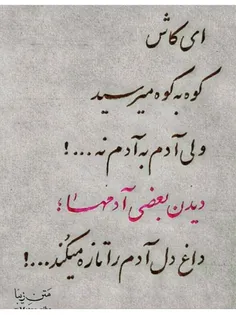 ای کاش
کوه به کوه میرسید
ولی آدم به آدم نه...!
دیدن بعضی آدمها؛
داغ دل آدم را تازه میکُند...!
مَتن زیبا